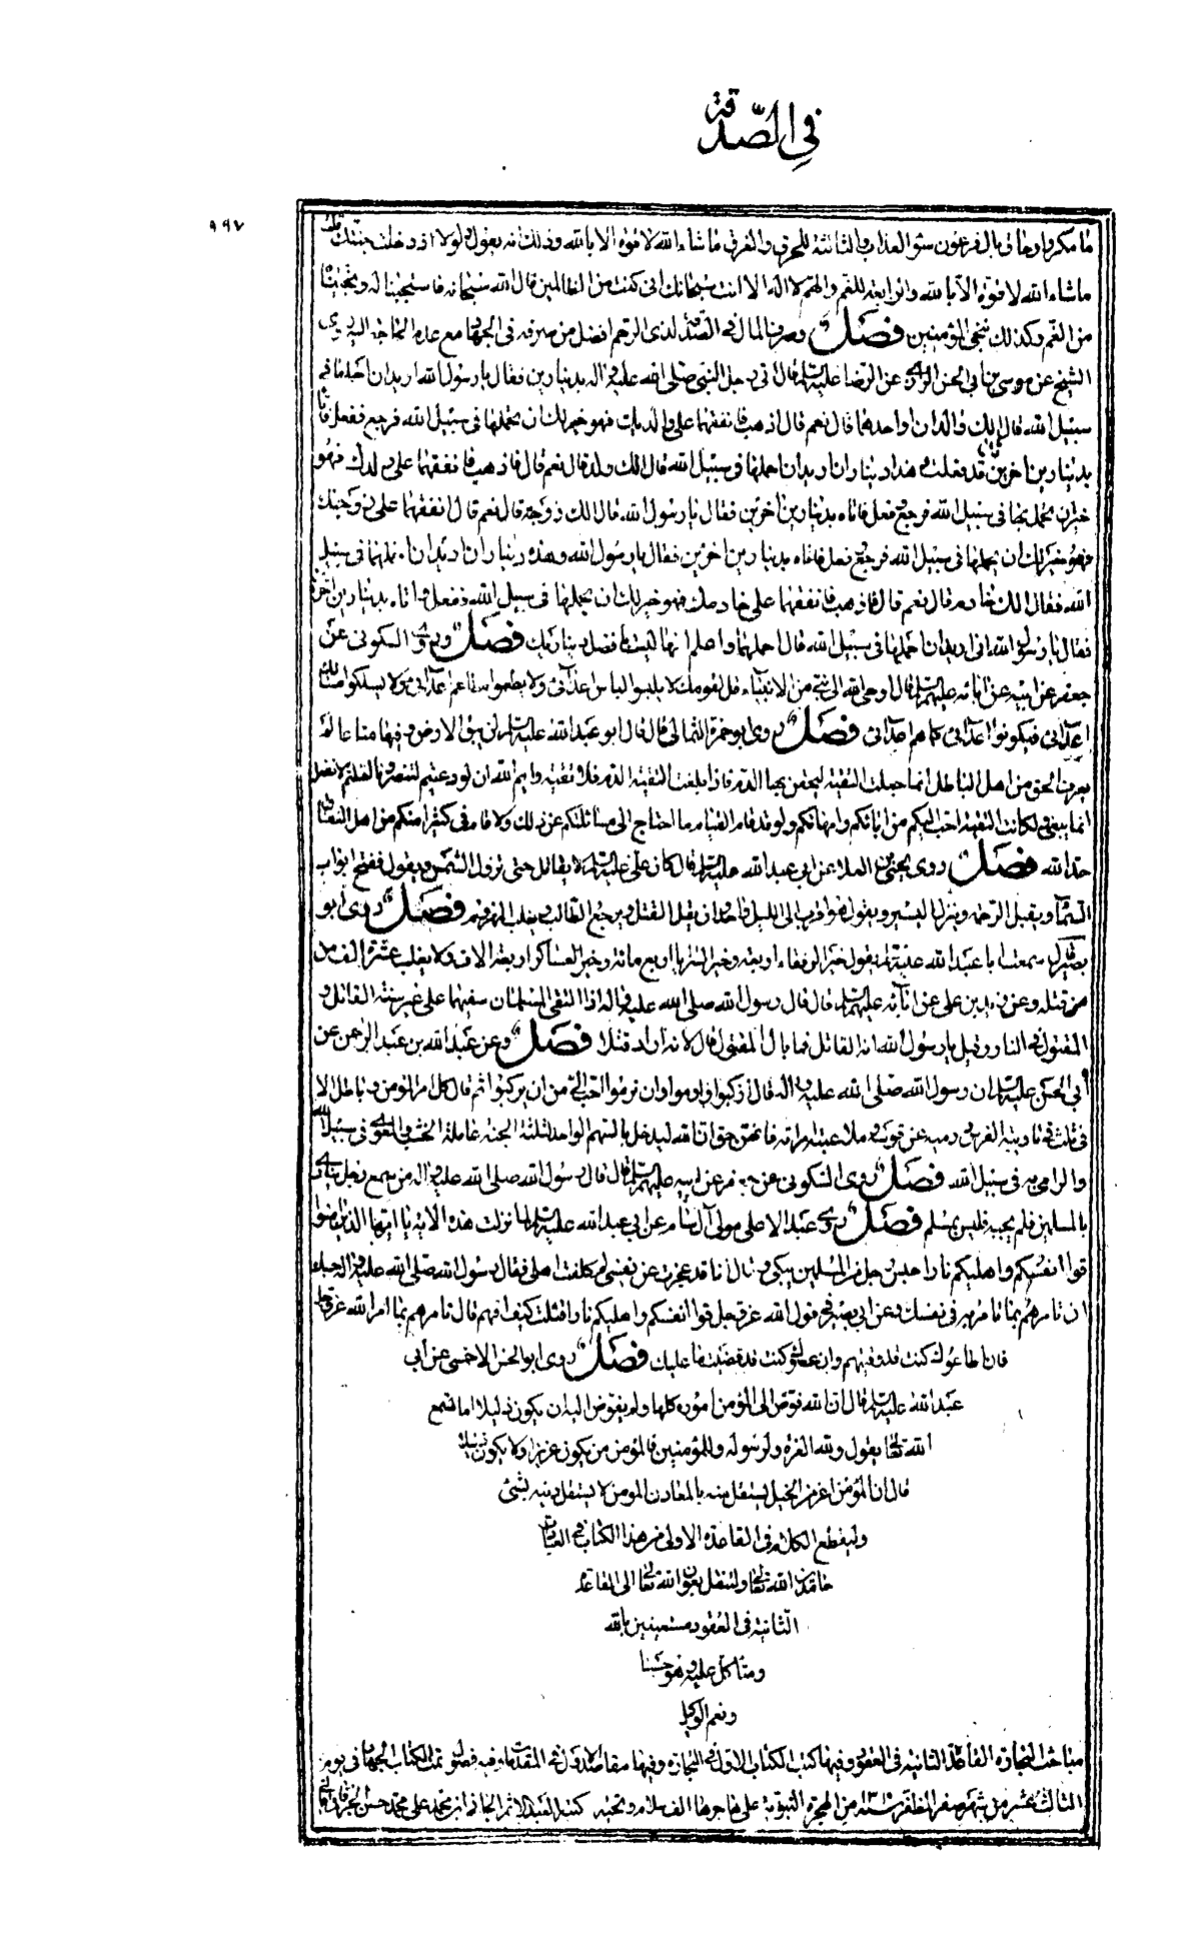 في الصدقة
٩٩٧
ما مكروا وحاق بال فرعون سوء العذاب والثالثة للحرق والغرق ما شاء الله لا قوة الا بالله وذلك انه يقول ولولا اذ دخلت جنتك قلت
ما شاء الله لا قوة الا بالله والرابعة للغم والهم لا اله الا انت سبحانك انى كنت من الظالمين قال الله سبحانه فاستجبنا له ونجيناه
من الغم وكذلك ننجى المؤمنين فصل وصرف المال في الصدقة لذى الرحم افضل من صرفه فى الجهاد مع عدم الحاجة اليه روى
الشيخ عن موسى بن ابى الحسن الرازى عن الرضا عليه السلام قال اتى رجل النبى صلى الله عليه واله بدينارين فقال يا رسول الله اريد ان احملهما فى
سبيل الله قال الك والدان او احدهما قال نعم قال اذهب فانفقهما على والديك فهو خير لك ان تحملهما فى سبيل الله فرجع ففعل فاتاه
بدينارين اخرين قد فعلت وهذه ديناران اريد ان احملهما فى سبيل الله قال الك ولد قال نعم قال فاذهب فانفقهما على ولدك فهو
خير ان تحمل بهما فى سبيل الله فرجع ففعل فاتاه بدينارين اخرين فقال يا رسول الله قال الك زوجة قال نعم قال انفقهما على زوجتك
فهو خير لك ان تحملهما فى سبيل الله فرجع ففعل فاتاه بدينارين اخرين فقال يا رسول الله وهذه ديناران اريد ان احملهما فى سبيل
الله فقال الك خادم قال نعم قال فاذهب فانفقهما على خادمك فهو خير لك ان تحملهما فى سبيل الله ففعل واتاه بدينارين اخرين
فقال يا رسول الله انى اريد ان احملهما فى سبيل الله قال احملهما واعلم انهما ليسا بافضل دينارينك فصل وروى السكونى عن
جعفر عن ابيه عن ابائه عليهم السلام قال اوحى الله الى نبى من الانبياء قل لقومك لا يلبسوا لباس اعدائى ولا يطعموا مطاعم اعدائى ولا يسلكوا مسالك
اعدائى فيكونوا اعدائى كما هم اعدائى فصل روى ابو حمزة الثمالى قال قال ابو عبد الله عليه السلام لن يبق الارض وفيها منا عالم
يعرف الحق من اهل الباطل انما جعلت التقية ليحقن بها الدم فاذا بلغت التقية الدم فلا تقية وايم الله ان لو دعيتم لتنصرونا لقلتم لا نفعل
انما نبقى ولكانت التقية احب اليكم من ابائكم وامهاتكم ولو قد قام القيام ما احتاج الى مسائلتكم عن ذلك ولاقام فى كثير منكم من اهل النفاق
حد الله فصل روى يحيى بن العلا عن ابى عبد الله عليه السلام قال كان على عليه السلام لا يقاتل حتى تزول الشمس ويقول تفتح ابواب
السماء ويقبل الرحمة وينزل اليسر ويقول هو اقرب الى الليل واحد ان يقل القتل ويرجع الطالب ويفلت المنهزم فصل روى ابو
بصير قال سمعت ابا عبد الله عليه السلام يقول خير الرفقاء اربعة وخير السرايا اربع مائة وخير العساكر اربعة الاف ولا يغلب عشرة الف من
من قتله وعن زيد بن على عن ابائه عليهم السلام قال قال رسول الله صلى الله عليه واله اذا التقى المسلمان سيفهما على غير سنة القاتل و
المقتول فى النار وقيل يا رسول الله انه القاتل فما بال المقتول قال لانه اراد قتلا فصل وعن عبد الله بن عبد الرحمن عن
ابى الحسن عليه السلام ان رسول الله صلى الله عليه واله قال اركبوا وارموا وان ترموا احب الى من ان يركبوا ثم قال كل امر المؤمن باطل الا
فى ثلث فى تاديبه الفرس ورميه عن قوسه وملاعبته امراته فانهن حق ان الله ليدخل بالسهم الواحد الثلثة الجنة عاملة الخشب والمقوى فى سبيل الله
والرامى به فى سبيل الله فصل روى السكونى عن جعفر عن ابيه عليهم السلام قال قال رسول الله صلى الله عليه واله من سمع رجلا ينادى
يا للمسلمين فلم يجبه فليس بمسلم فصل روى عبد الاعلى مولى آل سام عن ابى عبد الله عليه السلام لما نزلت هذه الاية يا ايها الذين امنوا
قوا انفسكم واهليكم نارا جلس رجل من المسلمين يبكى وقال انا قد عجزت عن نفسى كلفت اهلى فقال رسول الله صلى الله عليه واله حسبك
ان تامرهم بما تامر به فى نفسك وعن ابى بصير فى قول الله عز وجل قوا انفسكم واهليكم نارا قلت كيف اقيهم قال تامرهم بما امر الله عز وجل
فان اطاعوك كنت قد وقيتهم وان عصوك كنت قد قضيت ما عليك فصل روى ابو الحسن الاحمسى عن ابى
عبد الله عليه السلام قال ان الله فوض الى المؤمن اموره كلها ولم يفوض اليه ان يكون ذليلا اما تسمع
الله تعالى يقول ولله العزة ولرسوله وللمؤمنين فالمؤمن من يكون عزيزا ولا يكون ذليلا
قال ان المؤمن اعز من الجبل يستقل منه بالمعاول والمؤمن لا يستقل دينه بشئ
ولنقطع الكلام فى القاعدة الاولى من هذا الكتاب فى العبادات
حامدين الله تعالى ولننقل بعون الله تعالى الى القاعدة
الثانية فى العقود مستعينين بالله
ومتاكل عليه وهو حسبنا
ونعم الوكيل
مباحث التجارة القاعدة الثانية فى العقود وفيها كتب الكتاب الاول فى التجارة وفيها مقاصد الاول فى المقدمات وفيه فصول تمت الكتاب الجهاد فى يوم
الثالث عشر من شهر صفر المظفر سنة ١٣١٥ من الهجرة النبوية على هاجرها الف سلام وتحية كتبه العبد الاثم الجانى ابن محمد على محمد حسن الجرفادقانى